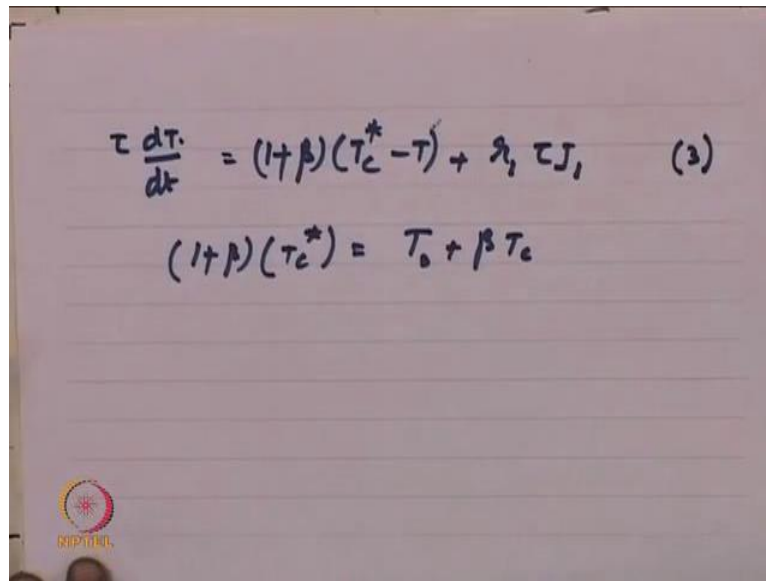 τ dT/dt = (1+β)(Tc* - T) + r₁ τ J₁ (3)
(1+β)(Tc*) = T₀ + β Tc
NPTEL